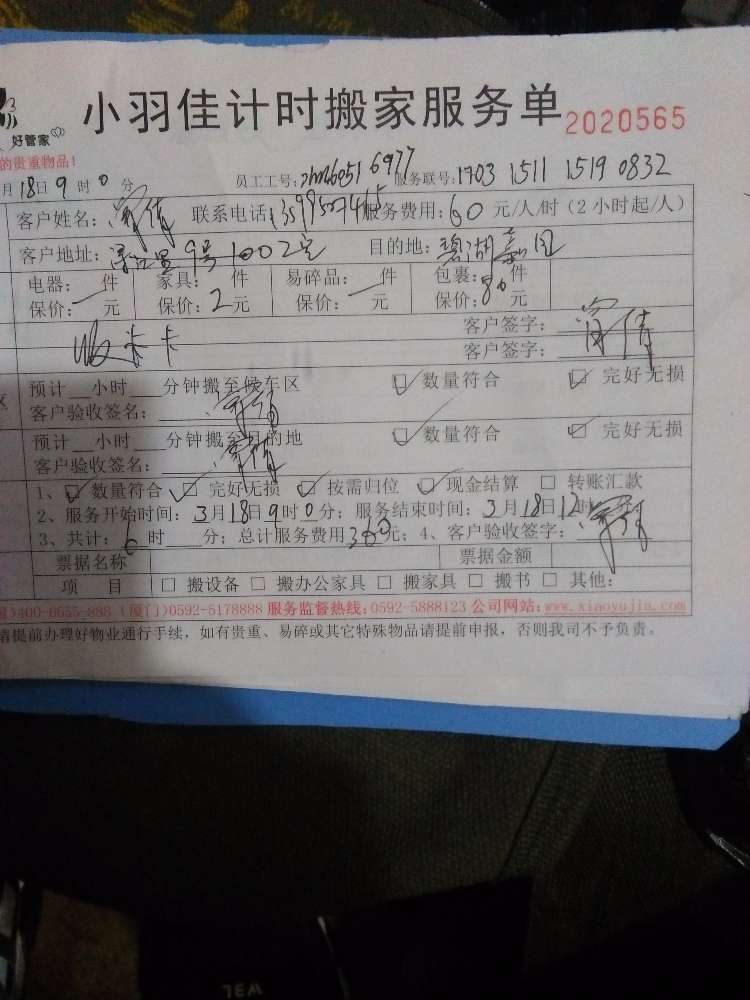 小羽佳计时搬家服务单 2020565
好管家
的贵重物品!
月18日9时0分 员工工号: 6977 服务联号:1703 1511 1519 0832
客户姓名: 联系电话: 服务费用:60元/人/时(2小时起/人)
客户地址: 9号1002室 目的地:碧湖
电器: 件 家具: 件 易碎品: 件 包裹: 件
保价: 元 保价:2元 保价: 元 保价:80元
客户签字:
收 卡 客户签字:
预计 小时 分钟搬至候车区 数量符合 完好无损
区 客户验收签名:
预计 小时 分钟搬至目的地 数量符合 完好无损
客户验收签名:
1、 数量符合 完好无损 按需归位 现金结算 转账汇款
2、服务开始时间:3月18日9时0分;服务结束时间:3月18日12时
3、共计:6时 分;总计服务费用360元;4、客户验收签字:
票据名称 票据金额
项 目 搬设备 搬办公家具 搬家具 搬书 其他:
)400-6655-888 (厦门)0592-5178888 服务监督热线:0592-5888123 公司网站:www.xiaoyujia.com
请提前办理好物业通行手续,如有贵重、易碎或其它特殊物品请提前申报,否则我司不予负责。
W3L